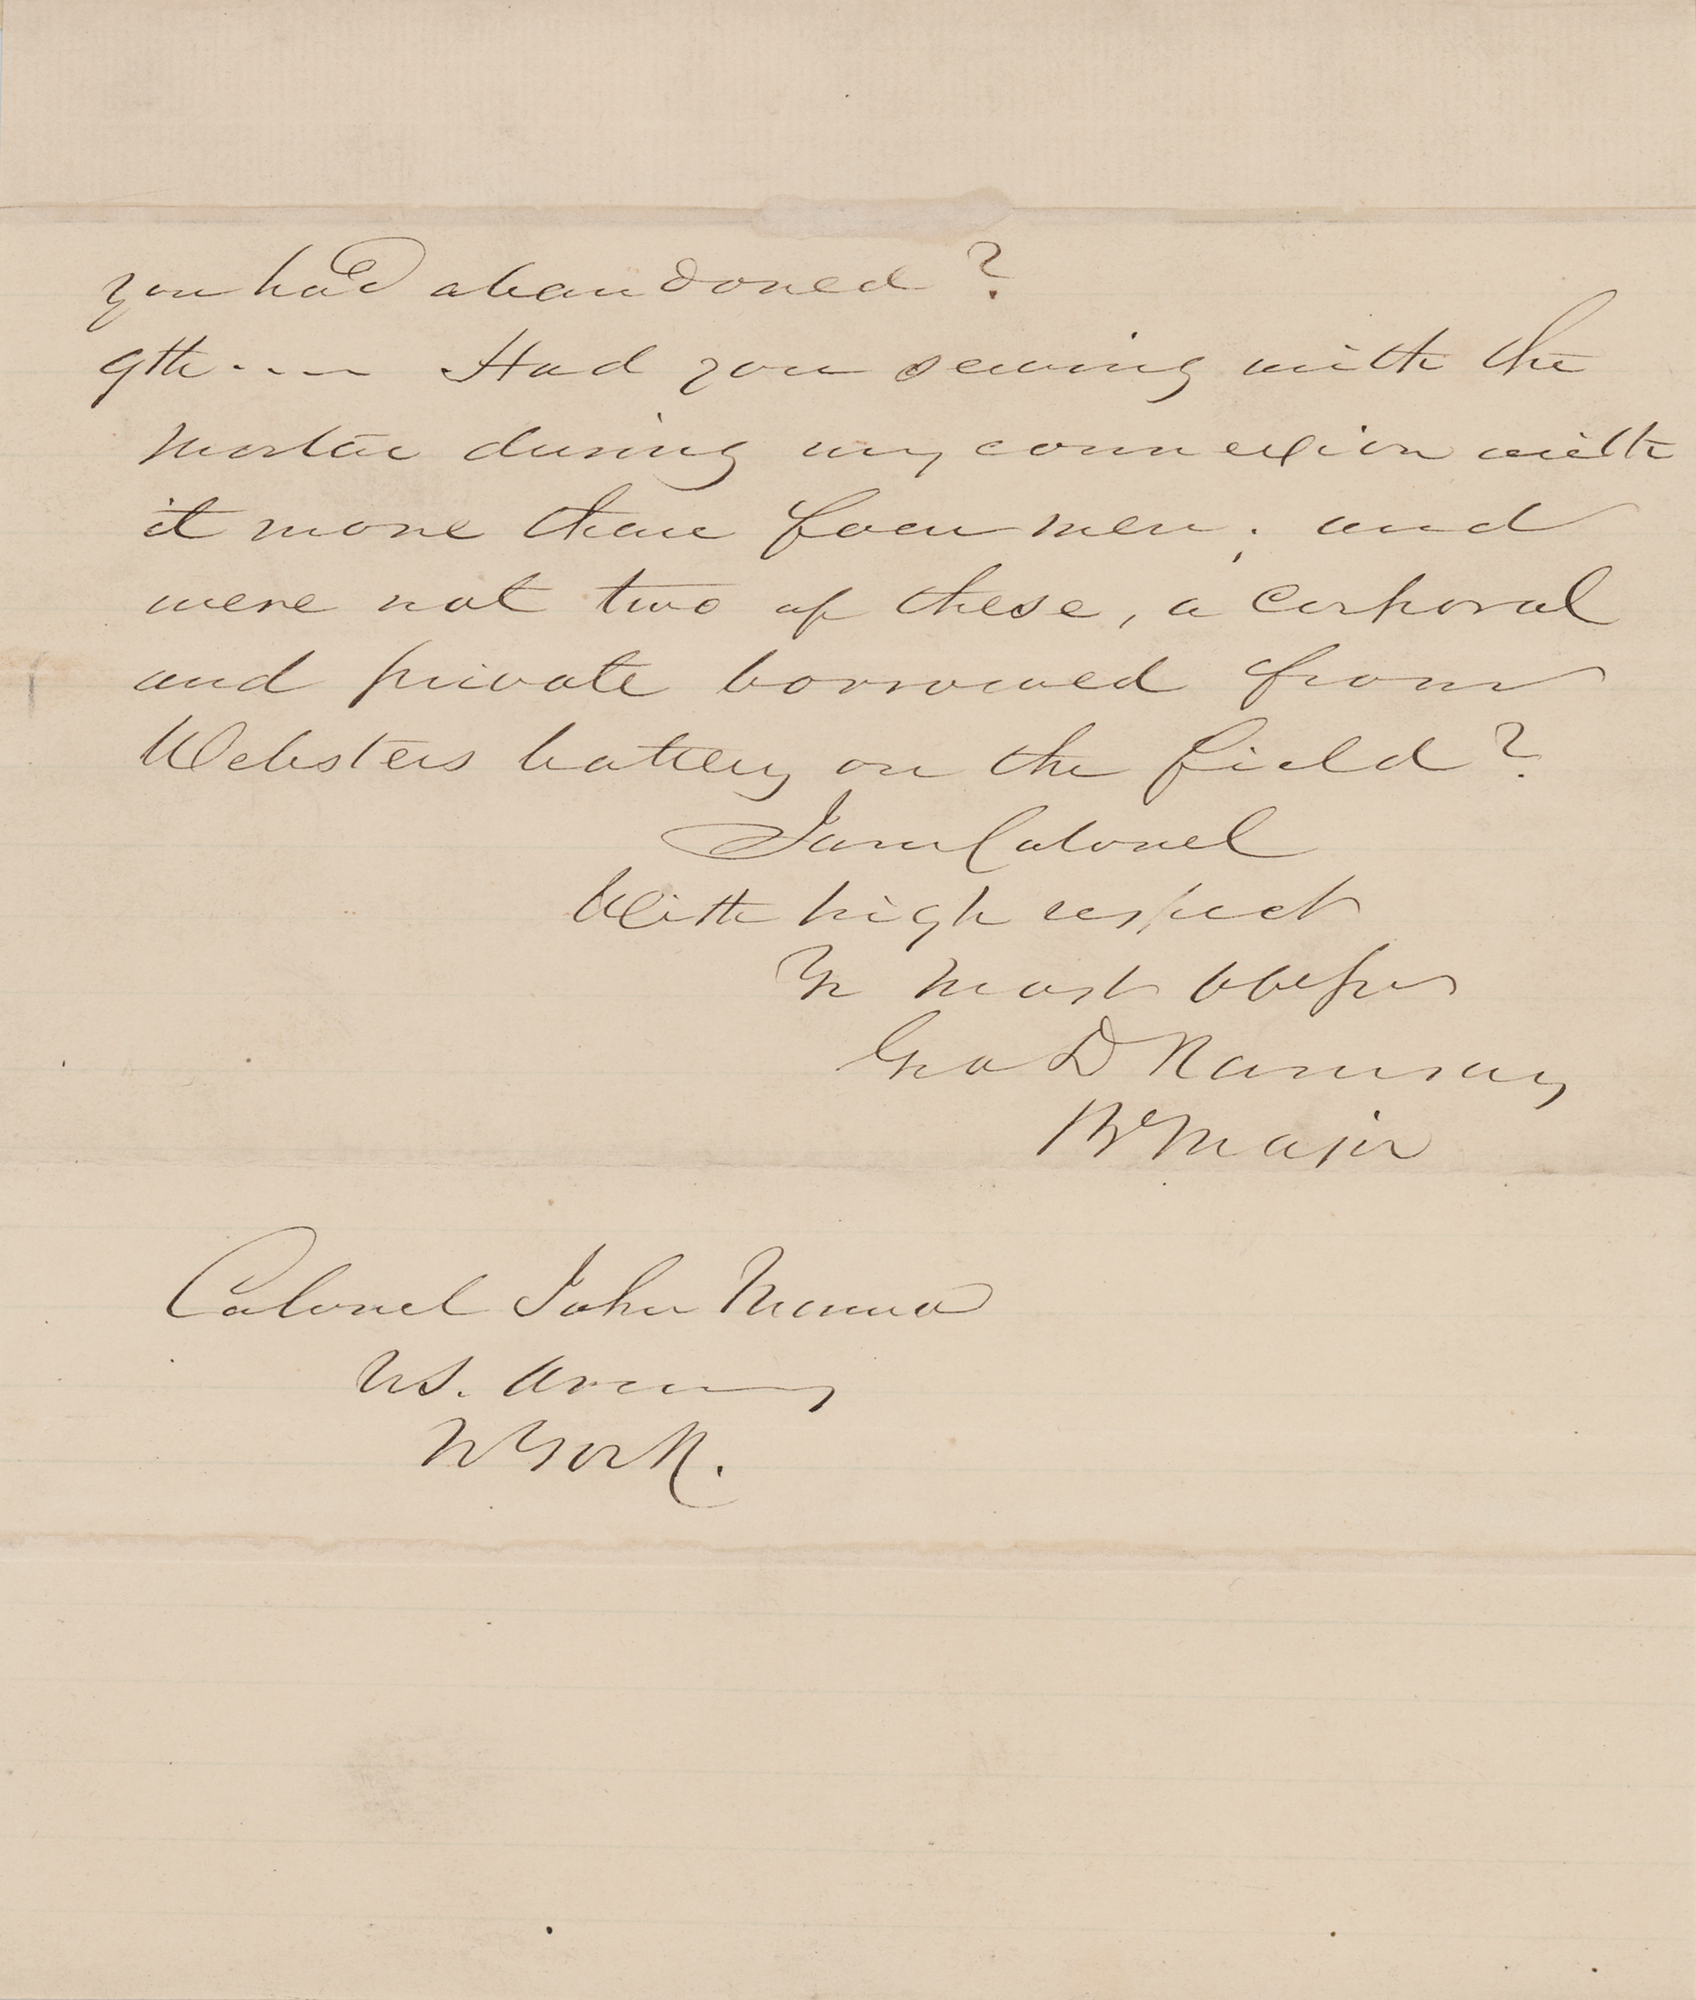 you had abandoned?
9th . . — Had you serving with the
Mortar during my connexion with
it more than four men; and
were not two of these, a Corporal
and private borrowed from
Websters battery on the field?
I am Colonel
With high respect
Yr most
Geo D Ramsay
Bt Major
Colonel John Munro
US. Army
N York.